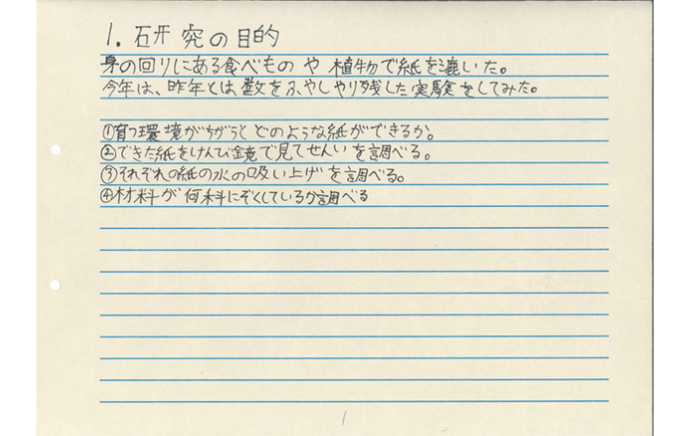 1. 研究の目的
身の回りにある食べものや植物で紙を漉いた。
今年は、昨年とは数をふやしやり残した実験をしてみた。
①育つ環境がちがうとどのような紙ができるか。
②できた紙をけんび鏡で見てせんいを調べる。
③それぞれの紙の水の吸い上げを調べる。
④材料が何科にぞくしているか調べる
1